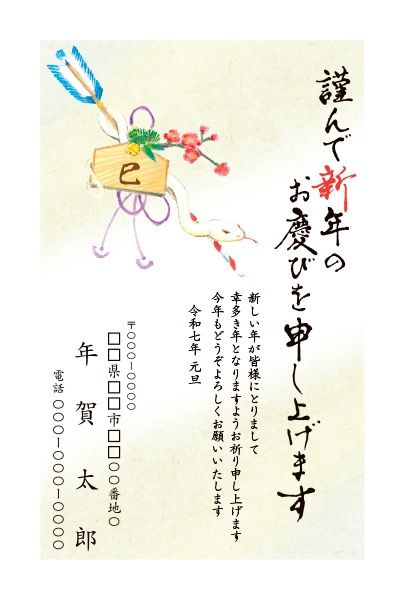 謹んで新年の
お慶びを申し上げます
巳
新しい年が皆様にとりまして
幸多き年となりますようお祈り申し上げます
今年もどうぞよろしくお願いいたします
令和七年 元旦
〒○○○-○○○○
□□県□□市□□○○番地○
年賀太郎
電話 ○○○-○○○-○○○○